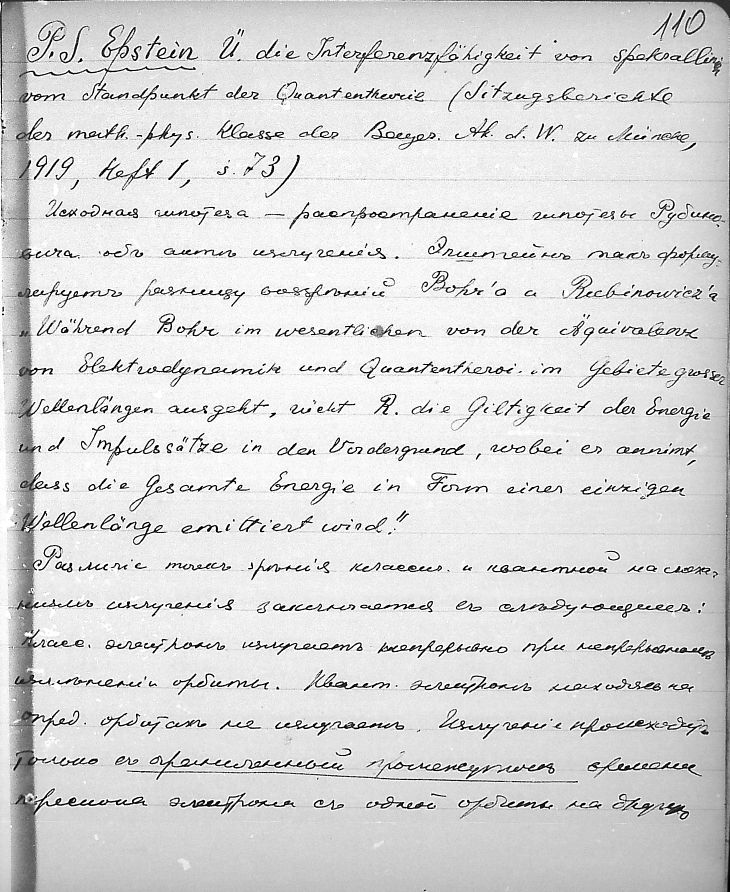 110
P. S. Epstein Ü. die Interferenzfähigkeit von spektrallinien
vom Standpunkt der Quantentheorie (Sitzugsberichte
der math.-phys. Klasse der Bayer. Ak. d. W. zu München,
1919, Heft 1, s. 73)
Исходная гипотеза — распространение гипотезы Рубино-
вича объ актѣ излученія. Эпштейнъ такъ форму-
лируетъ разницу воззрѣний Bohr'a и Rubinowicz'a
„Während Bohr im wesentlichen von der Äquivalenz
von Elektrodynamik und Quantentheori. im Gebiete grosser
Wellenlängen ausgeht, rückt R. die Giltigkeit der Energie
und Impulssätze in den Vordergrund, wobei er annimt,
dass die Gesamte Energie in Form einer einzigen
Wellenlänge emittiert wird."
Различіе точекъ зрѣнія классич. и квантной на
излученія заключается въ слѣдующемъ:
Класс. электронъ излучаетъ непрерывно при непрерывномъ
измѣненіи орбиты. Квант. электронъ находясь на
опред. орбитахъ не излучаетъ. Излученіе происходитъ
только въ ограниченный промежутокъ времени
перескока электрона съ одной орбиты на другую